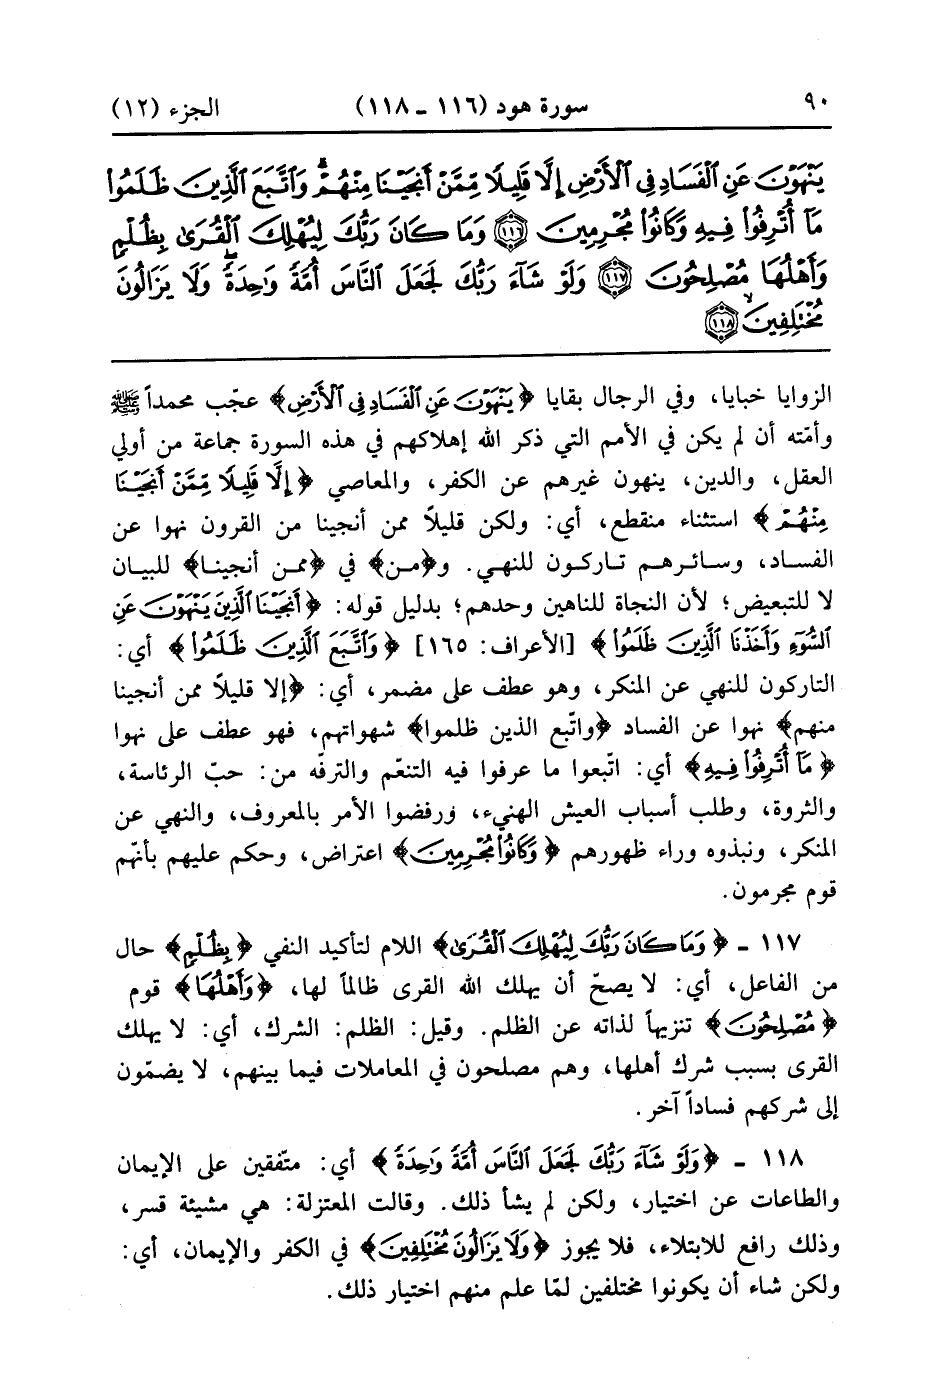 ٩٠ سورة هود (١١٦ - ١١٨) الجزء (١٢)
يَنْهَوْنَ عَنِ ٱلْفَسَادِ فِى ٱلْأَرْضِ إِلَّا قَلِيلًا مِّمَّنْ أَنجَيْنَا مِنْهُمْ ۗ وَٱتَّبَعَ ٱلَّذِينَ ظَلَمُوا۟
مَآ أُتْرِفُوا۟ فِيهِ وَكَانُوا۟ مُجْرِمِينَ ﴿١١٦﴾ وَمَا كَانَ رَبُّكَ لِيُهْلِكَ ٱلْقُرَىٰ بِظُلْمٍ
وَأَهْلُهَا مُصْلِحُونَ ﴿١١٧﴾ وَلَوْ شَآءَ رَبُّكَ لَجَعَلَ ٱلنَّاسَ أُمَّةً وَٰحِدَةً ۖ وَلَا يَزَالُونَ
مُخْتَلِفِينَ ۙ ﴿١١٨﴾
الزوايا خبايا، وفي الرجال بقايا ﴿يَنْهَوْنَ عَنِ ٱلْفَسَادِ فِى ٱلْأَرْضِ﴾ عجّب محمداً ﷺ
وأمّته أن لم يكن في الأمم التي ذكر الله إهلاكهم في هذه السورة جماعة من أولي
العقل، والدين، ينهون غيرهم عن الكفر، والمعاصي ﴿إِلَّا قَلِيلًا مِّمَّنْ أَنجَيْنَا
مِنْهُمْ﴾ استثناء منقطع، أي: ولكن قليلاً ممن أنجينا من القرون نهوا عن
الفساد، وسائرهم تاركون للنهي. و﴿من﴾ في ﴿ممن أنجينا﴾ للبيان
لا للتبعيض؛ لأن النجاة للناهين وحدهم؛ بدليل قوله: ﴿أَنجَيْنَا ٱلَّذِينَ يَنْهَوْنَ عَنِ
ٱلسُّوٓءِ وَأَخَذْنَا ٱلَّذِينَ ظَلَمُوا۟﴾ [الأعراف: ١٦٥] ﴿وَٱتَّبَعَ ٱلَّذِينَ ظَلَمُوا۟﴾ أي:
التاركون للنهي عن المنكر، وهو عطف على مضمر، أي: ﴿إلا قليلاً ممن أنجينا
منهم﴾ نهوا عن الفساد ﴿واتّبع الذين ظلموا﴾ شهواتهم، فهو عطف على نهوا
﴿مَآ أُتْرِفُوا۟ فِيهِ﴾ أي: اتّبعوا ما عرفوا فيه التنعّم والترفّه من: حبّ الرئاسة،
والثروة، وطلب أسباب العيش الهنيء، ورفضوا الأمر بالمعروف، والنهي عن
المنكر، ونبذوه وراء ظهورهم ﴿وَكَانُوا۟ مُجْرِمِينَ﴾ اعتراض، وحكم عليهم بأنّهم
قوم مجرمون.
١١٧ - ﴿وَمَا كَانَ رَبُّكَ لِيُهْلِكَ ٱلْقُرَىٰ﴾ اللام لتأكيد النفي ﴿بِظُلْمٍ﴾ حال
من الفاعل، أي: لا يصحّ أن يهلك الله القرى ظالماً لها، ﴿وَأَهْلُهَا﴾ قوم
﴿مُصْلِحُونَ﴾ تنزيهاً لذاته عن الظلم. وقيل: الظلم: الشرك، أي: لا يهلك
القرى بسبب شرك أهلها، وهم مصلحون في المعاملات فيما بينهم، لا يضمّون
إلى شركهم فساداً آخر.
١١٨ - ﴿وَلَوْ شَآءَ رَبُّكَ لَجَعَلَ ٱلنَّاسَ أُمَّةً وَٰحِدَةً﴾ أي: متّفقين على الإيمان
والطاعات عن اختيار، ولكن لم يشأ ذلك. وقالت المعتزلة: هي مشيئة قسر،
وذلك رافع للابتلاء، فلا يجوز ﴿وَلَا يَزَالُونَ مُخْتَلِفِينَ﴾ في الكفر والإيمان، أي:
ولكن شاء أن يكونوا مختلفين لمّا علم منهم اختيار ذلك.